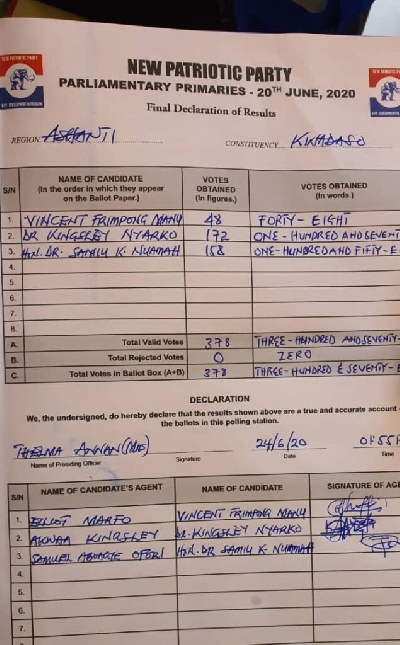 NEW PATRIOTIC PARTY
NEW PATRIOTIC PARTY
PARLIAMENTARY PRIMARIES - 20TH JUNE, 2020
Final Declaration of Results
REGION ASHANTI CONSTITUENCY KWADASO
S/N NAME OF CANDIDATE (In the order in which they appear on the Ballot Paper.) VOTES OBTAINED (In figures.) VOTES OBTAINED (In words.)
1. VINCENT FRIMPONG MANU 48 FORTY-EIGHT
2. DR KINGSLEY NYARKO 172 ONE-HUNDRED AND SEVENT
3. HON. DR. SAMIU K. NUAMAH 158 ONE-HUNDRED AND FIFTY-E
4.
5.
6.
7.
8.
A. Total Valid Votes 378 THREE-HUNDRED AND SEVENTY-
B. Total Rejected Votes 0 ZERO
C. Total Votes in Ballot Box (A+B) 378 THREE-HUNDRED & SEVENTY-
DECLARATION
We, the undersigned, do hereby declare that the results shown above are a true and accurate account
the ballots in this polling station.
THELMA ANNAN 24/6/20
Name of Presiding Officer Signature Date Time
S/N NAME OF CANDIDATE'S AGENT NAME OF CANDIDATE SIGNATURE OF AGE
1. ELLIOT MARFO VINCENT FRIMPONG MANU
2. KINGSLEY DR. KINGSLEY NYARKO
3. SAMUEL OFORI HON. DR SAMIU K. NUAMAH
4.
5.
6.
7.